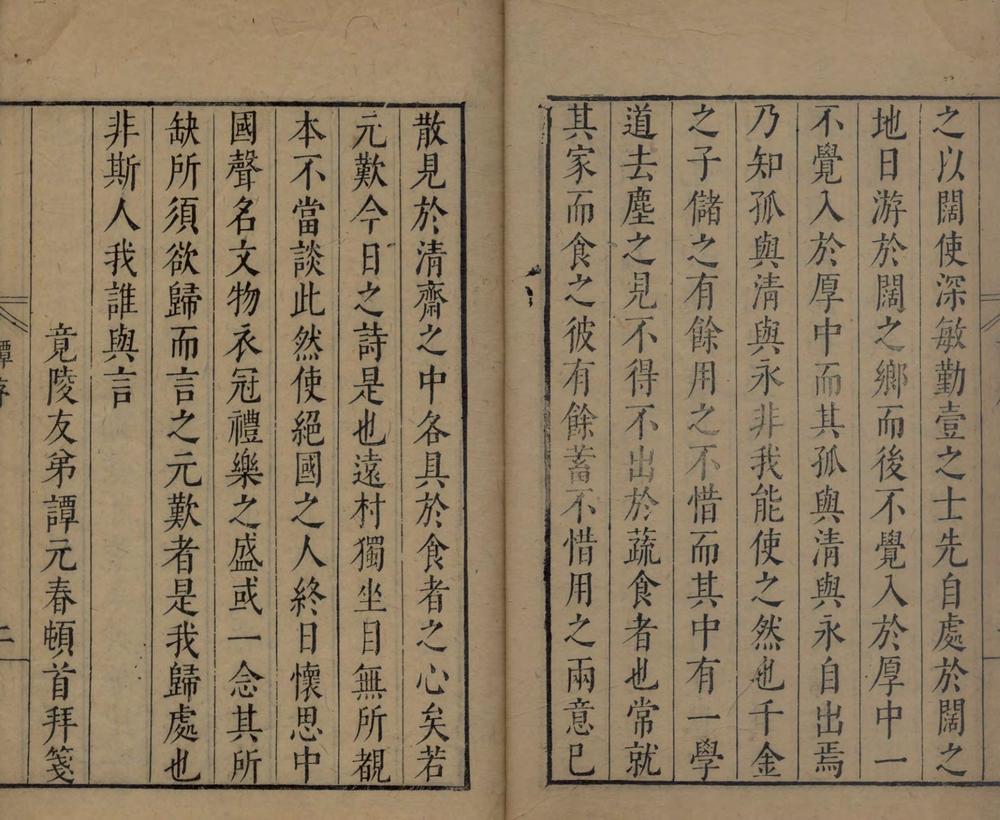 之以闊使深敏勤壹之士先自處於闊之
地日游於闊之鄉而後不覺入於厚中一
不覺入於厚中而其孤與清與永自出焉
乃知孤與清與永非我能使之然也千金
之子儲之有餘用之不惜而其中有一學
道去塵之見不得不出於蔬食者也常就
其家而食之彼有餘蓄不惜用之兩意已
散見於清齋之中各具於食者之心矣若
元歎今日之詩是也遠村獨坐目無所覩
本不當談此然使絕國之人終日懷思中
國聲名文物衣冠禮樂之盛或一念其所
缺所須欲歸而言之元歎者是我歸處也
非斯人我誰與言
竟陵友弟譚元春頓首拜箋
譚序
二